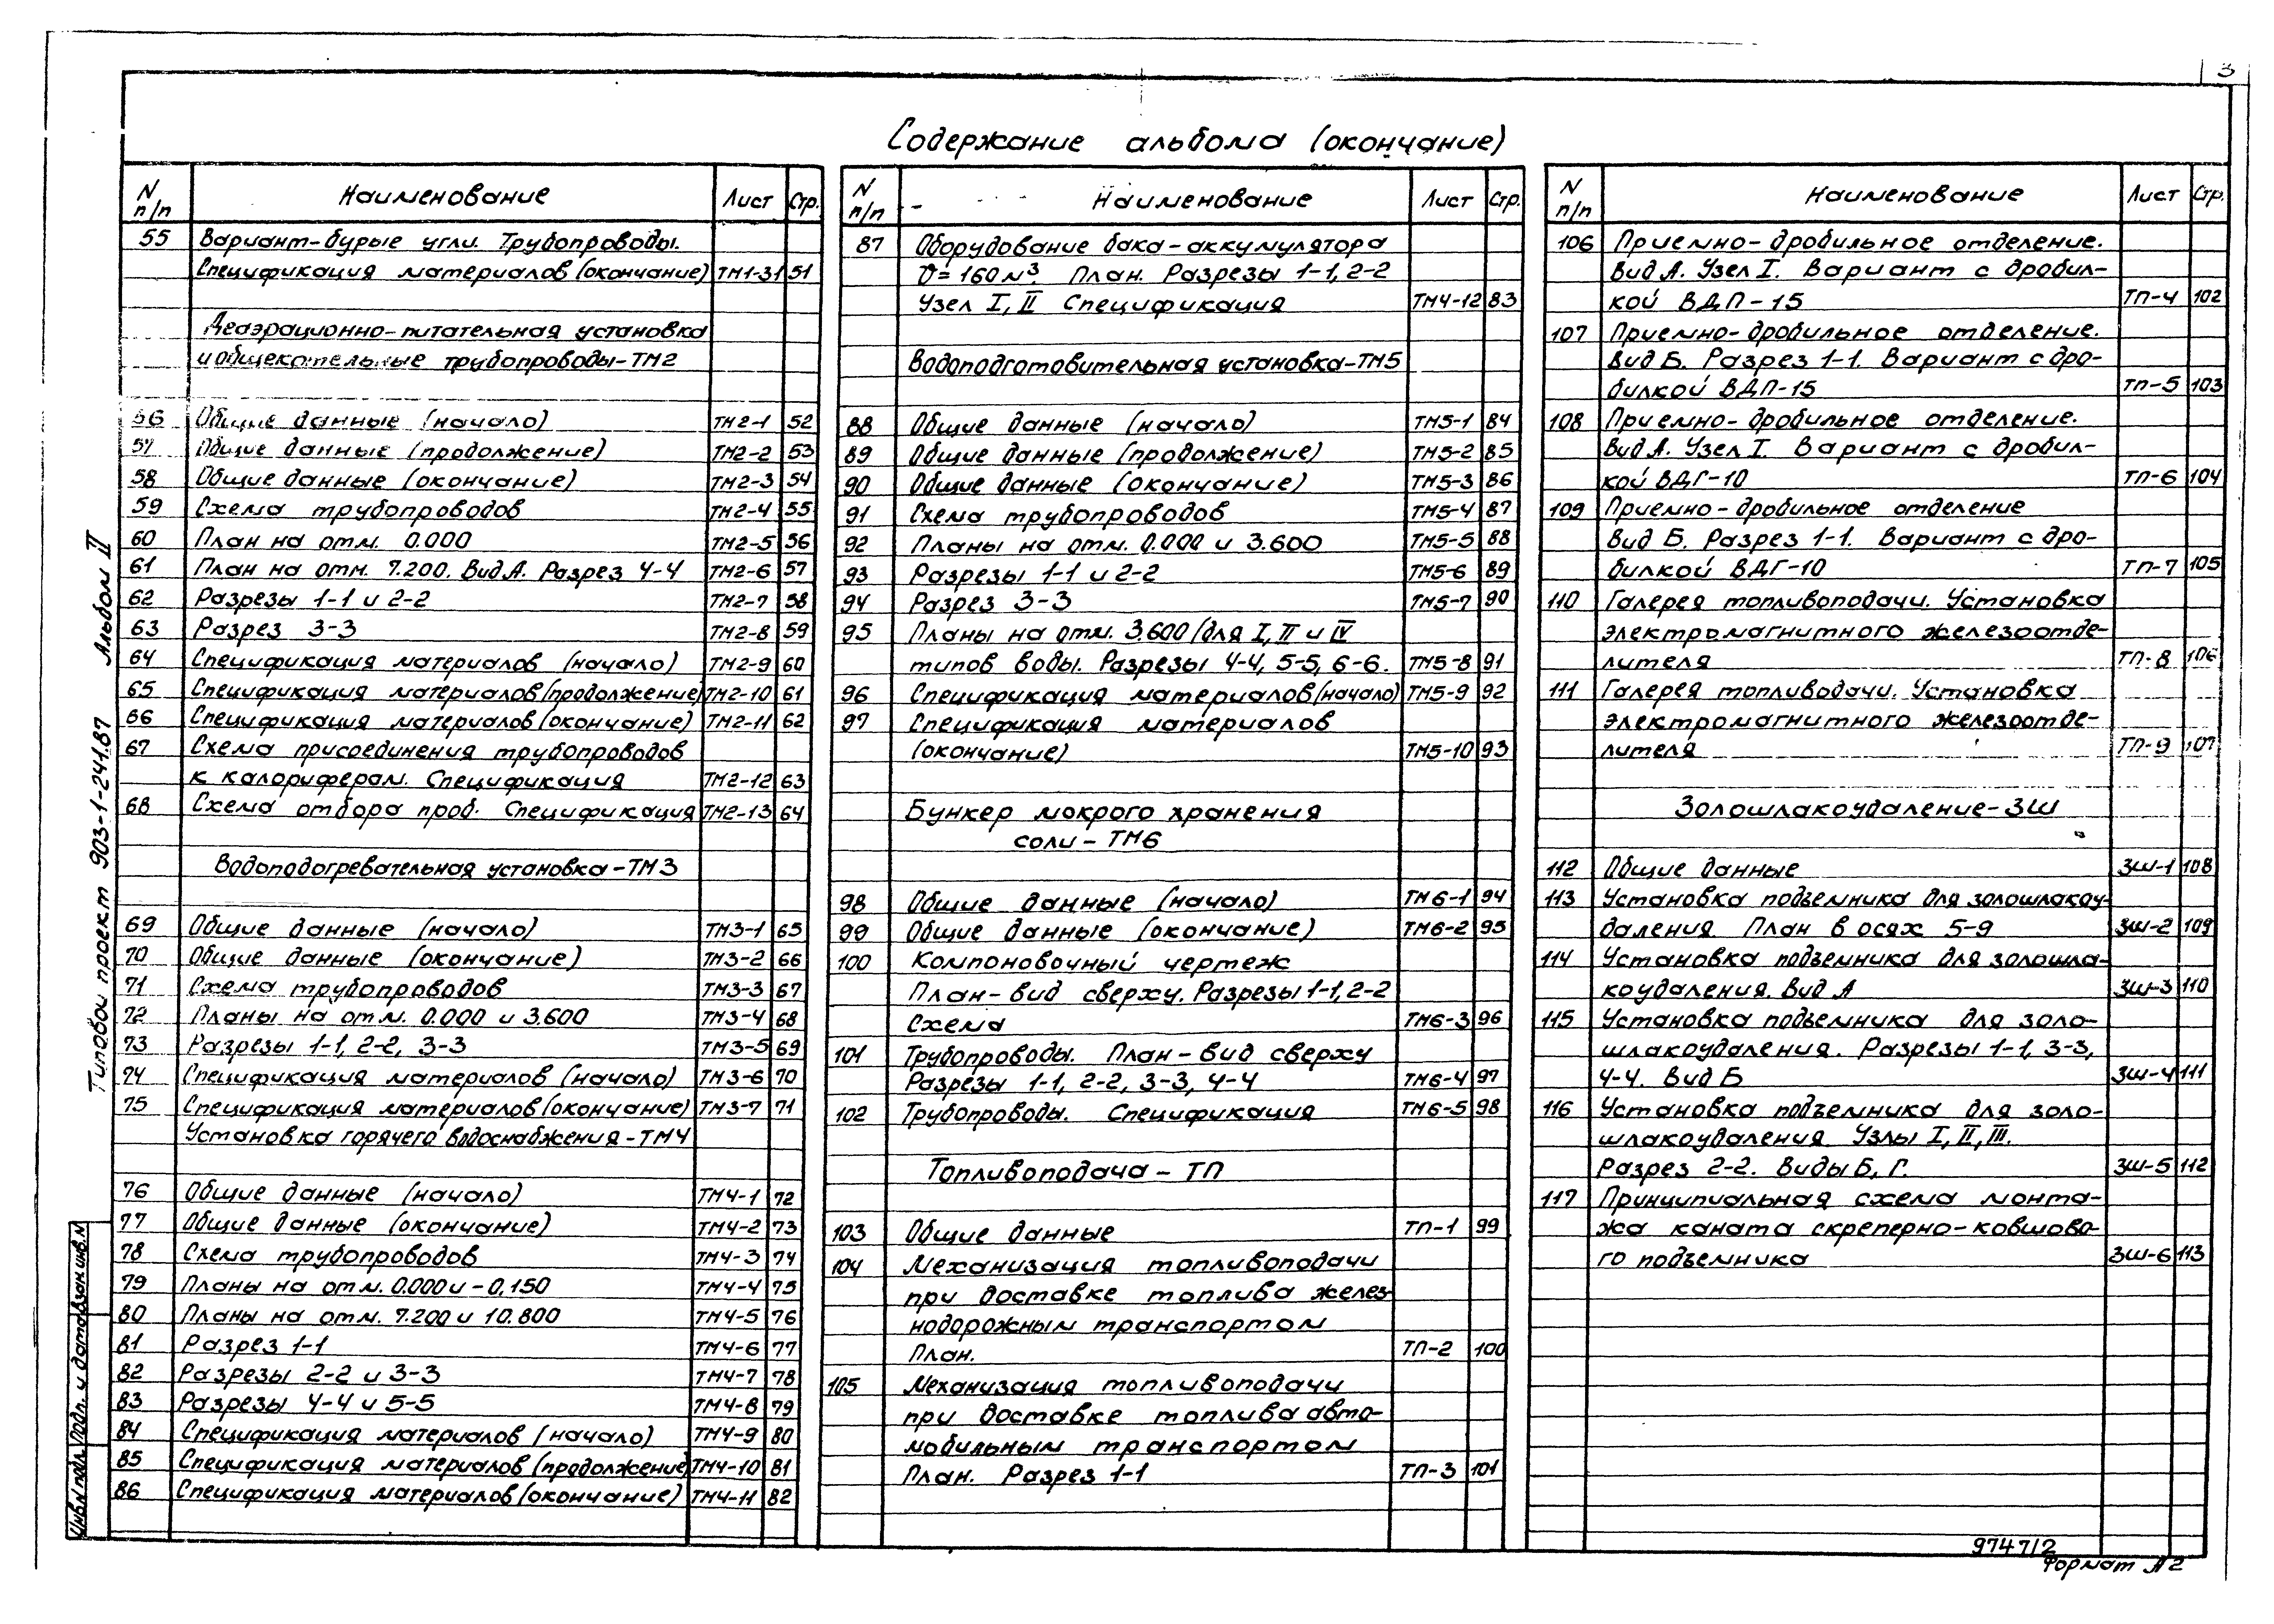 3
Содержание альбома (окончание)
N п/п Наименование Лист Стр.
55 Вариант-бурые угли. Трубопроводы.
Спецификация материалов (окончание) ТМ1-31 51
Деаэрационно-питательная установка
и общекотельные трубопроводы-ТМ2
56 Общие данные (начало) ТМ2-1 52
57 Общие данные (продолжение) ТМ2-2 53
58 Общие данные (окончание) ТМ2-3 54
59 Схема трубопроводов ТМ2-4 55
60 План на отм. 0.000 ТМ2-5 56
61 План на отм. 7.200. Вид А. Разрез 4-4 ТМ2-6 57
62 Разрезы 1-1 и 2-2 ТМ2-7 58
63 Разрез 3-3 ТМ2-8 59
64 Спецификация материалов (начало) ТМ2-9 60
65 Спецификация материалов (продолжение) ТМ2-10 61
66 Спецификация материалов (окончание) ТМ2-11 62
67 Схема присоединения трубопроводов
к калориферам. Спецификация ТМ2-12 63
68 Схема отбора проб. Спецификация ТМ2-13 64
Водоподогревательная установка-ТМ3
69 Общие данные (начало) ТМ3-1 65
70 Общие данные (окончание) ТМ3-2 66
71 Схема трубопроводов ТМ3-3 67
72 Планы на отм. 0.000 и 3.600 ТМ3-4 68
73 Разрезы 1-1, 2-2, 3-3 ТМ3-5 69
74 Спецификация материалов (начало) ТМ3-6 70
75 Спецификация материалов (окончание) ТМ3-7 71
Установка горячего водоснабжения-ТМ4
76 Общие данные (начало) ТМ4-1 72
77 Общие данные (окончание) ТМ4-2 73
78 Схема трубопроводов ТМ4-3 74
79 Планы на отм. 0.000 и -0,150 ТМ4-4 75
80 Планы на отм. 7.200 и 10.800 ТМ4-5 76
81 Разрез 1-1 ТМ4-6 77
82 Разрезы 2-2 и 3-3 ТМ4-7 78
83 Разрезы 4-4 и 5-5 ТМ4-8 79
84 Спецификация материалов (начало) ТМ4-9 80
85 Спецификация материалов (продолжение) ТМ4-10 81
86 Спецификация материалов (окончание) ТМ4-11 82
N п/п Наименование Лист Стр.
87 Оборудование бака-аккумулятора
V=160 м³. План. Разрезы 1-1, 2-2
Узел I, II Спецификация ТМ4-12 83
Водоподготовительная установка-ТМ5
88 Общие данные (начало) ТМ5-1 84
89 Общие данные (продолжение) ТМ5-2 85
90 Общие данные (окончание) ТМ5-3 86
91 Схема трубопроводов ТМ5-4 87
92 Планы на отм. 0.000 и 3.600 ТМ5-5 88
93 Разрезы 1-1 и 2-2 ТМ5-6 89
94 Разрез 3-3 ТМ5-7 90
95 Планы на отм. 3.600 (для I, II и IV
типов воды. Разрезы 4-4, 5-5, 6-6. ТМ5-8 91
96 Спецификация материалов (начало) ТМ5-9 92
97 Спецификация материалов
(окончание) ТМ5-10 93
Бункер мокрого хранения
соли - ТМ6
98 Общие данные (начало) ТМ6-1 94
99 Общие данные (окончание) ТМ6-2 95
100 Компоновочный чертеж
План-вид сверху. Разрезы 1-1, 2-2
Схема ТМ6-3 96
101 Трубопроводы. План-вид сверху
Разрезы 1-1, 2-2, 3-3, 4-4 ТМ6-4 97
102 Трубопроводы. Спецификация ТМ6-5 98
Топливоподача - ТП
103 Общие данные ТП-1 99
104 Механизация топливоподачи
при доставке топлива желез-
нодорожным транспортом
План. ТП-2 100
105 Механизация топливоподачи
при доставке топлива авто-
мобильным транспортом
План. Разрез 1-1 ТП-3 101
N п/п Наименование Лист Стр.
106 Приемно-дробильное отделение.
Вид А. Узел I. Вариант с дробил-
кой ВДП-15 ТП-4 102
107 Приемно-дробильное отделение.
Вид Б. Разрез 1-1. Вариант с дро-
билкой ВДП-15 ТП-5 103
108 Приемно-дробильное отделение.
Вид А. Узел I. Вариант с дробил-
кой ВДГ-10 ТП-6 104
109 Приемно-дробильное отделение
Вид Б. Разрез 1-1. Вариант с дро-
билкой ВДГ-10 ТП-7 105
110 Галерея топливоподачи. Установка
электромагнитного железоотде-
лителя ТП-8 106
111 Галерея топливодачи. Установка
электромагнитного железоотде-
лителя ТП-9 107
Золошлакоудаление-ЗШ
112 Общие данные ЗШ-1 108
113 Установка подъемника для золошлакоу-
даления План в осях 5-9 ЗШ-2 109
114 Установка подъемника для золошла-
коудаления. Вид А ЗШ-3 110
115 Установка подъемника для золо-
шлакоудаления. Разрезы 1-1, 3-3,
4-4. Вид Б ЗШ-4 111
116 Установка подъемника для золо-
шлакоудаления Узлы I, II, III.
Разрез 2-2. Виды Б, Г. ЗШ-5 112
117 Принципиальная схема монта-
жа каната скреперно-ковшово-
го подъемника ЗШ-6 113
Типовой проект 903-1-241.87 Альбом II
Инв.N подл. Подп. и дата Взам инв.N
9747/2
Формат А2